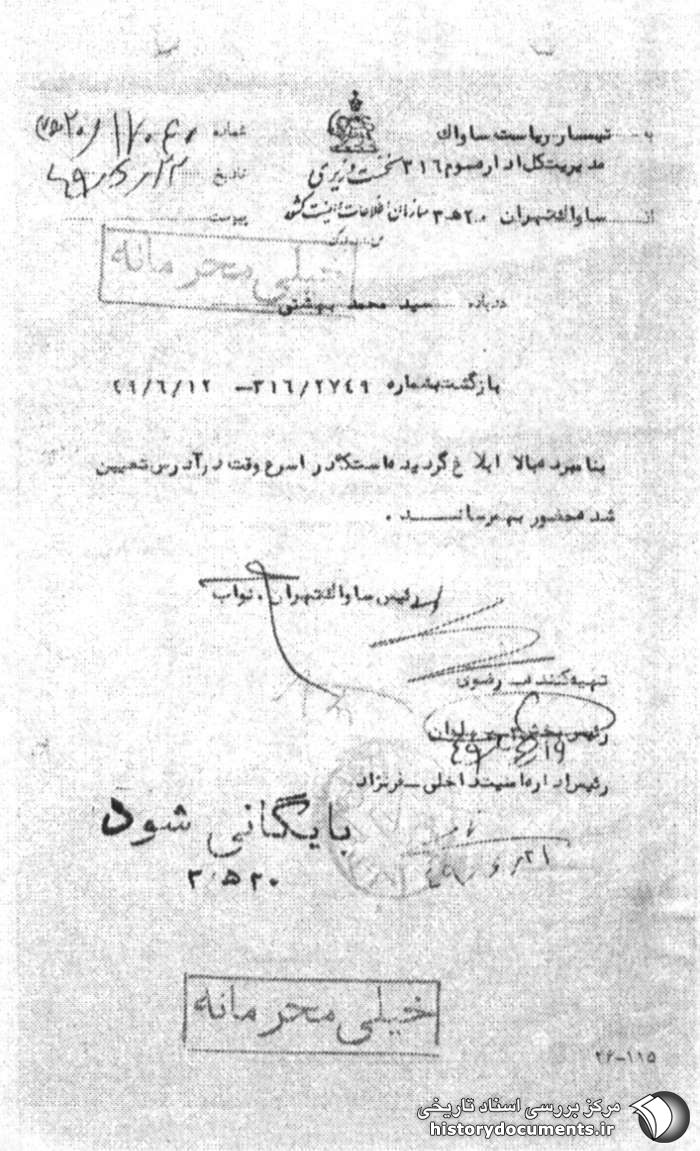 به تیمسار ریاست ساواک
مدیریت کل اداره سوم ۳۱۶
از ساواک تهران ۲۰ ﻫ ۳
نخست وزیری
سازمان اطلاعات و امنیت کشور
س.ا.و.ا.ک
شماره
تاریخ
پیوست
خیلی محرمانه
درباره سید محمد بهشتی
بازگشت بشماره ۳۱۶/۲۷۴۹ - ۴۹/۶/۱۲
بنامبرده بالا ابلاغ گردیده است که در اسرع وقت در آدرس تعیین
شده حضور بهم رسانـــد .
رئیس ساواک تهران . نواب
تهیه کننده - رضوی
رئیس بخش
۱۹
رئیس اداره امنیت داخلی - فرنژاد
۲۱
بایگانی شود
۲۰ ﻫ ۳
خیلی محرمانه
۲۶-۱۱۵
مرکز بررسی اسناد تاریخی
historydocuments.ir